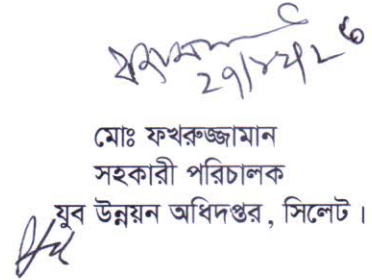 মোঃ ফখরুজ্জামান
সহকারী পরিচালক
যুব উন্নয়ন অধিদপ্তর, সিলেট।